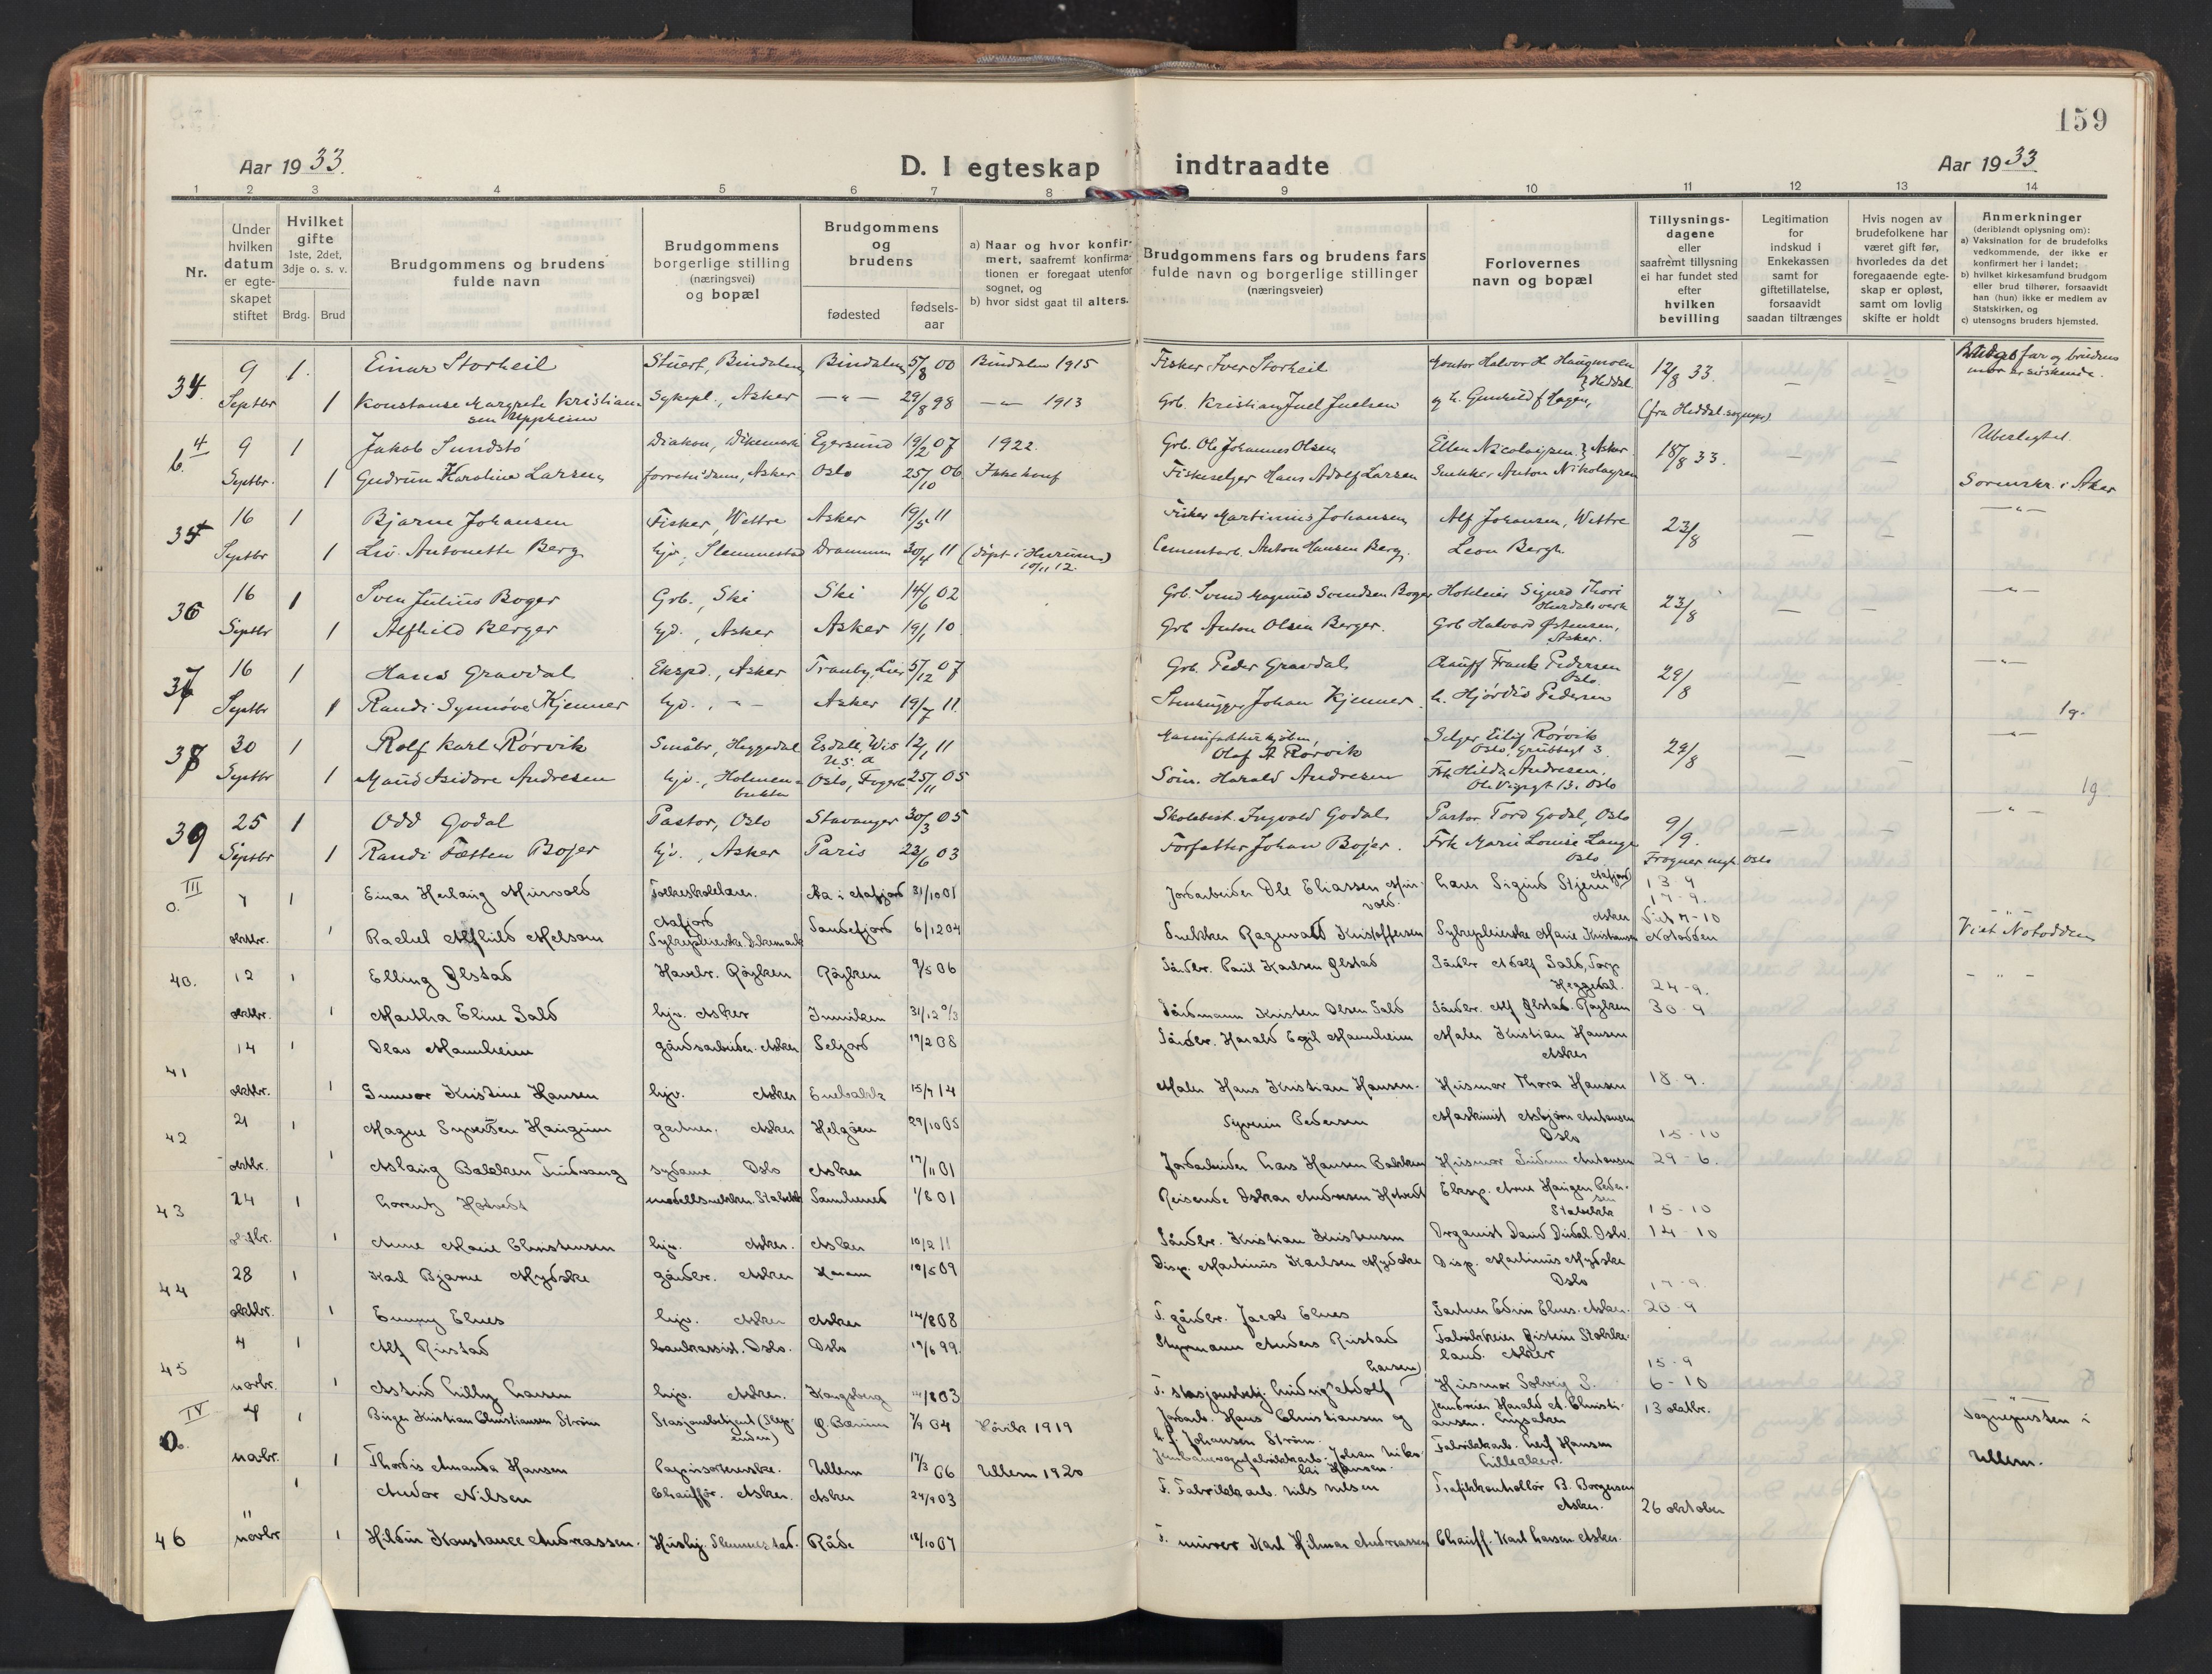 159
Aar 1933.
D. I egteskap indtraadte
Aar 1933
1 2 3 4 5 6 7 8 9 10 11 12 13 14
Nr.
Under hvilken datum er egteskapet stiftet
Hvilket gifte
1ste, 2det, 3dje o. s. v.
Brdg. Brud
Brudgommens og brudens fulde navn
Brudgommens borgerlige stilling (næringsvei) og bopæl
Brudgommens og brudens
fødested
fødselsaar
a) Naar og hvor konfirmert, saafremt konfirmationen er foregaat utenfor sognet, og
b) hvor sidst gaat til alters.
Brudgommens fars og brudens fars fulde navn og borgerlige stillinger (næringsveier)
Forlovernes navn og bopæl
Tillysningsdagene eller saafremt tillysning ei har fundet sted efter hvilken bevilling
Legitimation for indskud i Enkekassen samt for giftetillatelse, forsaavidt saadan tiltrænges
Hvis nogen av brudefolkene har været gift før, hvorledes da det foregaaende egteskap er opløst, samt om lovlig skifte er holdt
Anmerkninger
(deriblandt oplysning om):
a) Vaksination for de brudefolks vedkommende, der ikke er konfirmert her i landet;
b) hvilket kirkesamfund brudgom eller brud tilhører, forsaavidt han (hun) ikke er medlem av Statskirken, og
c) utensogns bruders hjemsted.
34. 9 1. Einar Storheil Stuert, Bindalen Bindalen 5/8 00 Bindalen 1915 Fisker Iver Storheil 12/8 33. —
Septbr 1 Konstanse Margrete Kristiansen Uppheim Sykepl., Asker — " — 29/8 98 — " — 1913 Grb. Kristian Juel Juelsen (fra Heddal sogn)
4 9 1 Jakob Sundstø Diakon, Dikemark Egersund 19/2 07 1922. Grb. Ole Johannes Olsen Ellen Nicolaysen } Asker 18/8 33. Ubeslegtet.
Septbr. 1 Gudrun Karoline Larsen Asker Oslo 25/10 06 Ikke konf Fiskeselger Hans Adolf Larsen Snekker Anton Nikolaysen Sorenskr. i Aker
35 16 1 Bjarne Johansen Fisker, Wettre Asker 19/5 11 Fisker Martinius Johansen Alf Johansen, Wettre 23/8 — — — " —
Septbr 1 Liv Antonette Berg hjv., Slemmestad Drammen 30/4 11 (døpt i Hurum 10/11 12.) Cementarb. Anton Hansen Berg. Leon Bergh.
36 16 1 Sven Julius Boger Grb., Ski Ski 14/6 02 Grb. Svend Magnus Svendsen Boger Hoteleier Sigurd Thori Hurdalsverk 23/8 — — — " —
Septbr 1 Alfhild Berger hjv., Asker Asker 19/1 10. Grb Anton Olsen Berger. Grb Halvard Østensen, Asker.
37 16 1 Hans Gravdal Ekspd., Asker Tranby, Lier 5/12 07 Grb. Peder Gravdal Chauff Frank Pedersen Oslo. 29/8 — — — " —
Septbr 1 Randi Synnøve Kjenner hjv., — " — Asker 19/7 11. Stenhugger Johan Kjenner. h. Hjørdis Pedersen 19.
38 30 1 Rolf Karl Rørvik Småbr, Heggedal Esdaile, Wis U.S.A 12/1 11 Olaf A Rørvik Selger Eilif Rørvik Oslo, 29/8 — — — " —
Septbr 1 Maud Isidore Andresen hjv., Holmenbukten Oslo, 25/11 05 Harald Andresen Frk Hilda Andresen, Ole Vigsgt 13. Oslo 19.
39 25 1 Odd Godal Pastor, Oslo Stavanger 30/3 05 Skolebest. Ingvald Godal Pastor Tord Godal, Oslo 9/9. — — — " —
Septbr 1 Randi Fætten Bojer hjv., Asker Paris 23/6 03 Forfatter Johan Bojer. Frk Marie Louise Lange Oslo Frogner mgh. Oslo
III
0. 7 1 Einar Herlaug Murvold Folkeskolelærer. Aafjord Aa i Aafjord 31/10 01 Jordarbeider Ole Eliassen Murvold. Lærer Sigurd Stjern Aafjord 13-9 17-9.
oktbr. 1 Rachel Alfhild Melsom Sykepleierske. Dikemark Sandefjord 6/12 04 Snekker Ragnvald Kristoffersen Sykepleierske Marie Kristiansen Asker Viet 7-10 Notodden Viet Notodden
40. 12 1 Elling Ølstad Røyken Røyken 9/5 06 Gårdbr. Paul Karlsen Ølstad Gårdbr Adolf Sald, Torp Heggedal. 24-9. — " —
oktbr. 1 Martha Eline Sald hjv. Asker 31/12 Gårdmann Kristen Olsen Sald Gårdbr. Alf Ølstad. Røyken 30-9
41 14 1 Olav Mannheim gårdsarbeider. Asker Seljord 19/2 08 Gårdbr. Harald Egil Mannheim Maler Kristian Hansen Asker
oktbr. 1 Gunvor Kristine Hansen hjv. Asker Enebakk 15/7 14 Maler Hans Kristian Hansen. Husmor Thora Hansen 18-9.
42 21 1 Magne Syversen Haugrim gartner. Asker Helgøen 29/10 05 Syverin Pedersen Maskinist Asbjørn Antonsen Oslo 15-10
oktbr. 1 Aslaug Bakken Tindvang sydame Oslo Asker 17/11 01 Jordarbeider Lars Hansen Bakken Husmor Antonsen 29-6.
43 24 1 Lorentz Hotvedt modellsnekker. Stabekk 1/8 01 Reisende Oskar Andresen Hotvedt Eksp. Arne Haugen Pedersen Stabekk 15-10
oktbr. 1 Anne Marie Christensen hjv. Asker. Asker 10/2 11 Gårdbr. Kristian Kristensen Organist David Oslo. 14-10
44 28 1 Karl Bjarne Mydske gårdbr. Asker Haram 10/5 09 Disp. Martinus Karlsen Mydske Disp. Martinus Mydske Oslo 17-9.
oktbr. 1 Emmy Elnes hjv. Asker Asker 14/8 08 F. gårdbr. Jacob Elnes Gartner Edvin Elnes. Asker. 20-9
45 4 1 Alf Rustad bankassist. Oslo. Oslo 19/6 99. Styrmann Anders Rustad Fabrikkeier Øistein Stokkeland. Asker 15-9
novbr. 1 Astrid Lilly Larsen hjv. Asker. Kongsberg 14/8 03 F. stasjonsbetj. Ludvig Adolf Larsen) Husmor Solveig S. 6-10
IV
0. 4 1 Birger Kristian Christiansen Strøm Stasjonsbetjent (Slependen) Ø. Bærum 7/9 04 Høvik 1919 Jordarb. Hans Christiansen og h. f. Johansen Strøm. Harald A. Christiansen. Lysaker 13 oktbr. Sognepresten i
novbr. 1 Thordis Amanda Hansen Papirsorterske. Ullern 17/3 06 Ullern 1920 Johan Nikolai Hansen. Fabrikkarb. Leif Hansen Lilleaker. Ullern.
46 11 1 Andor Nilsen Chauffør. Asker. Asker 24/9 03 F. Fabrikkarb. Nils Nilsen Trafikkontrollør B. Borgersen Asker. 26 oktober
novbr 1 Hildur Konstance Andreassen. Hushj. Slemmestad. Råde 18/10 07 F. murer Karl Hilmar Andreassen Chauff. Karl Larsen Asker.